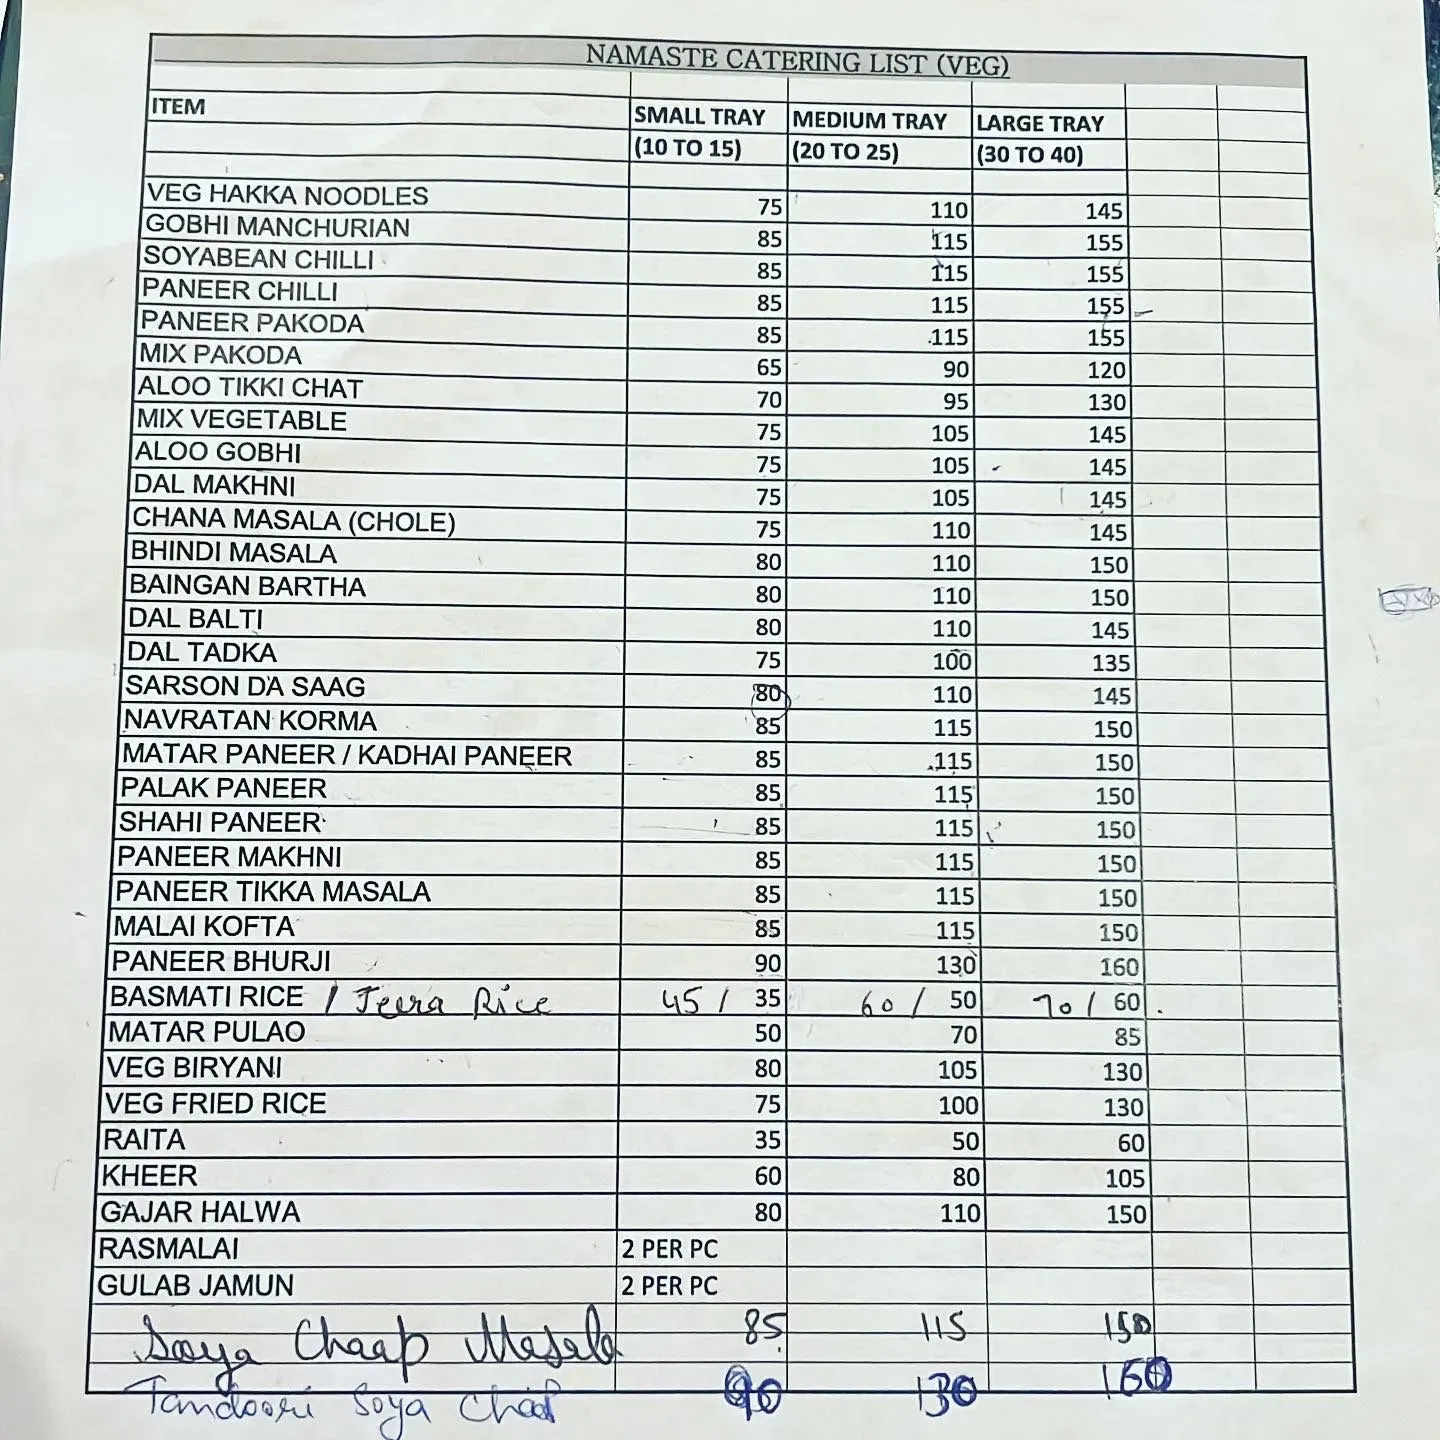 NAMASTE CATERING LIST (VEG)
ITEM SMALL TRAY MEDIUM TRAY LARGE TRAY
(10 TO 15) (20 TO 25) (30 TO 40)
VEG HAKKA NOODLES 75 110 145
GOBHI MANCHURIAN 85 115 155
SOYABEAN CHILLI 85 115 155
PANEER CHILLI 85 115 155
PANEER PAKODA 85 115 155
MIX PAKODA 65 90 120
ALOO TIKKI CHAT 70 95 130
MIX VEGETABLE 75 105 145
ALOO GOBHI 75 105 145
DAL MAKHNI 75 105 145
CHANA MASALA (CHOLE) 75 110 145
BHINDI MASALA 80 110 150
BAINGAN BARTHA 80 110 150
DAL BALTI 80 110 145
DAL TADKA 75 100 135
SARSON DA SAAG 80 110 145
NAVRATAN KORMA 85 115 150
MATAR PANEER / KADHAI PANEER 85 115 150
PALAK PANEER 85 115 150
SHAHI PANEER 85 115 150
PANEER MAKHNI 85 115 150
PANEER TIKKA MASALA 85 115 150
MALAI KOFTA 85 115 150
PANEER BHURJI 90 130 160
BASMATI RICE / Jeera Rice 45 / 35 60 / 50 70 / 60
MATAR PULAO 50 70 85
VEG BIRYANI 80 105 130
VEG FRIED RICE 75 100 130
RAITA 35 50 60
KHEER 60 80 105
GAJAR HALWA 80 110 150
RASMALAI 2 PER PC
GULAB JAMUN 2 PER PC
Soya Chaap Masala 85 115 150
Tandoori Soya Chaap 90 130 160